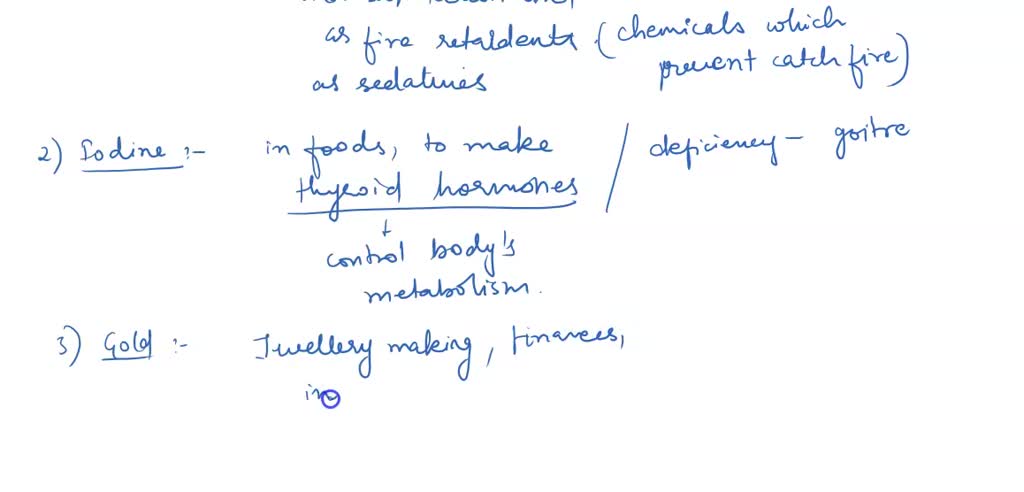 as fire retaldents (chemicals which
prevent catch fire)
as sedatives
2) Iodine :- in foods, to make / deficiency - goitre
thyroid hormones
control body's
metabolism.
3) Gold :- Jwellery making, finances,
in